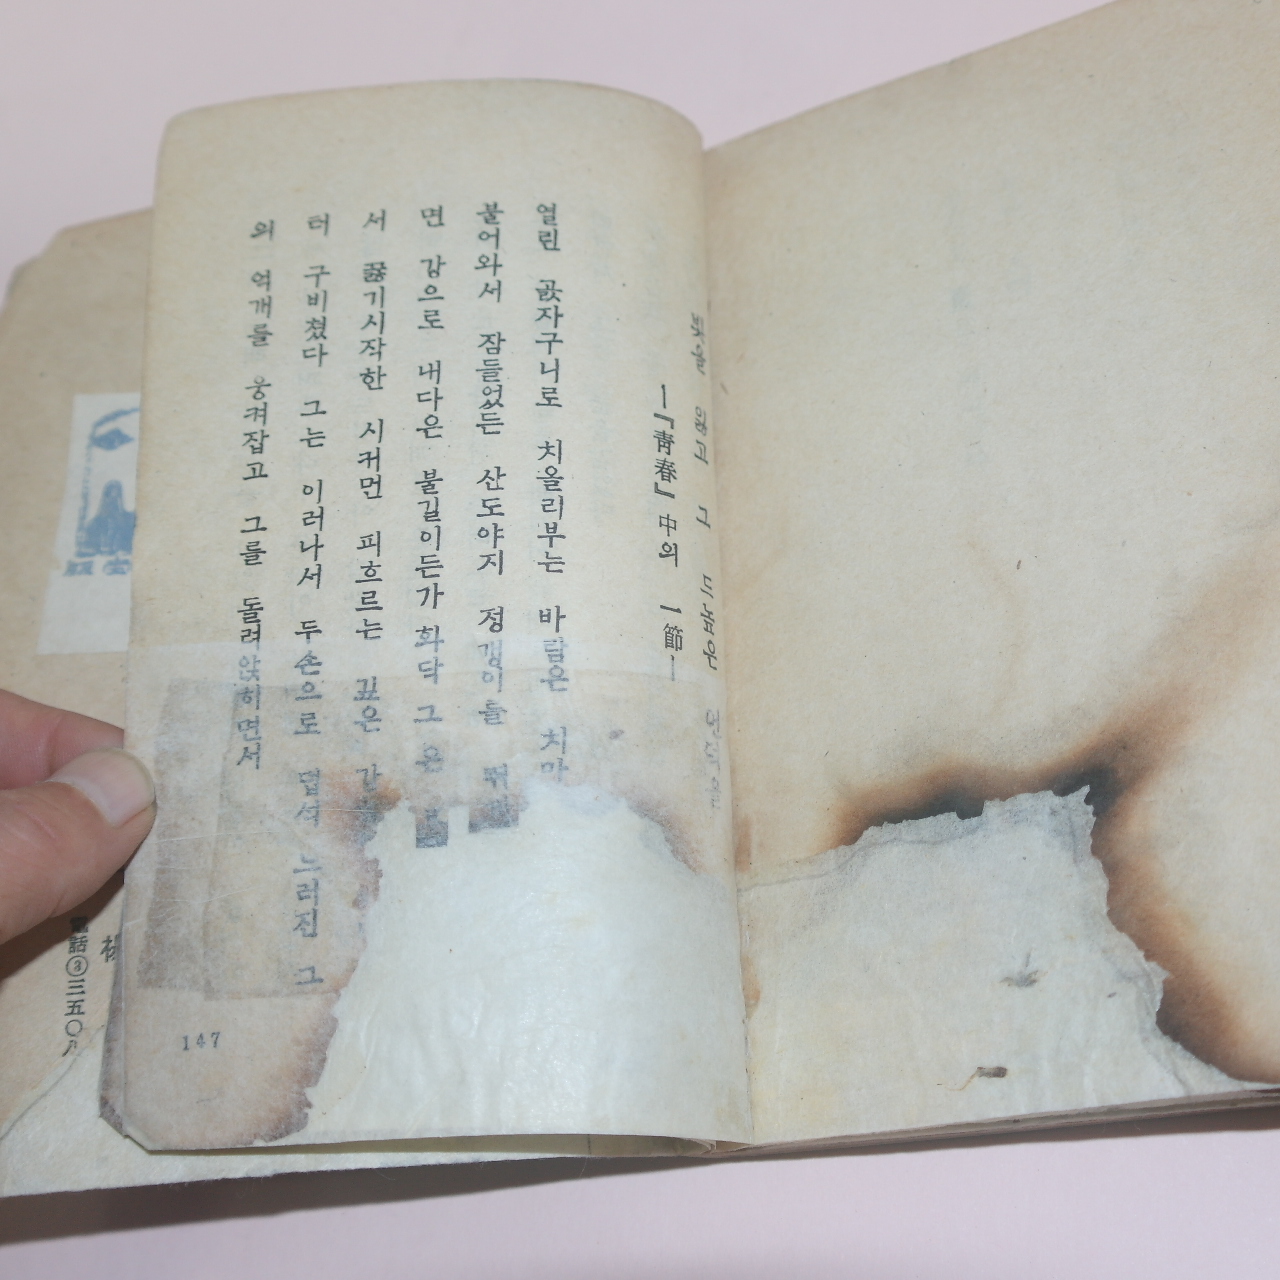 빛을 잃고 그 드높은 언덕을
—『靑春』中의 一節—
열린 곬자구니로 치올리부는 바람은 치마
불어와서 잠들었든 산도야지 정갱이를
면 강으로 내다은 불길이든가 화닥 그 은
서 끓기시작한 시커먼 피흐르는 깊은
터 구비쳤다 그는 이러나서 두손으로 덥석 드러진 그
의 억개를 웅켜잡고 그를 돌려앉히면서
147
電話③三五〇八